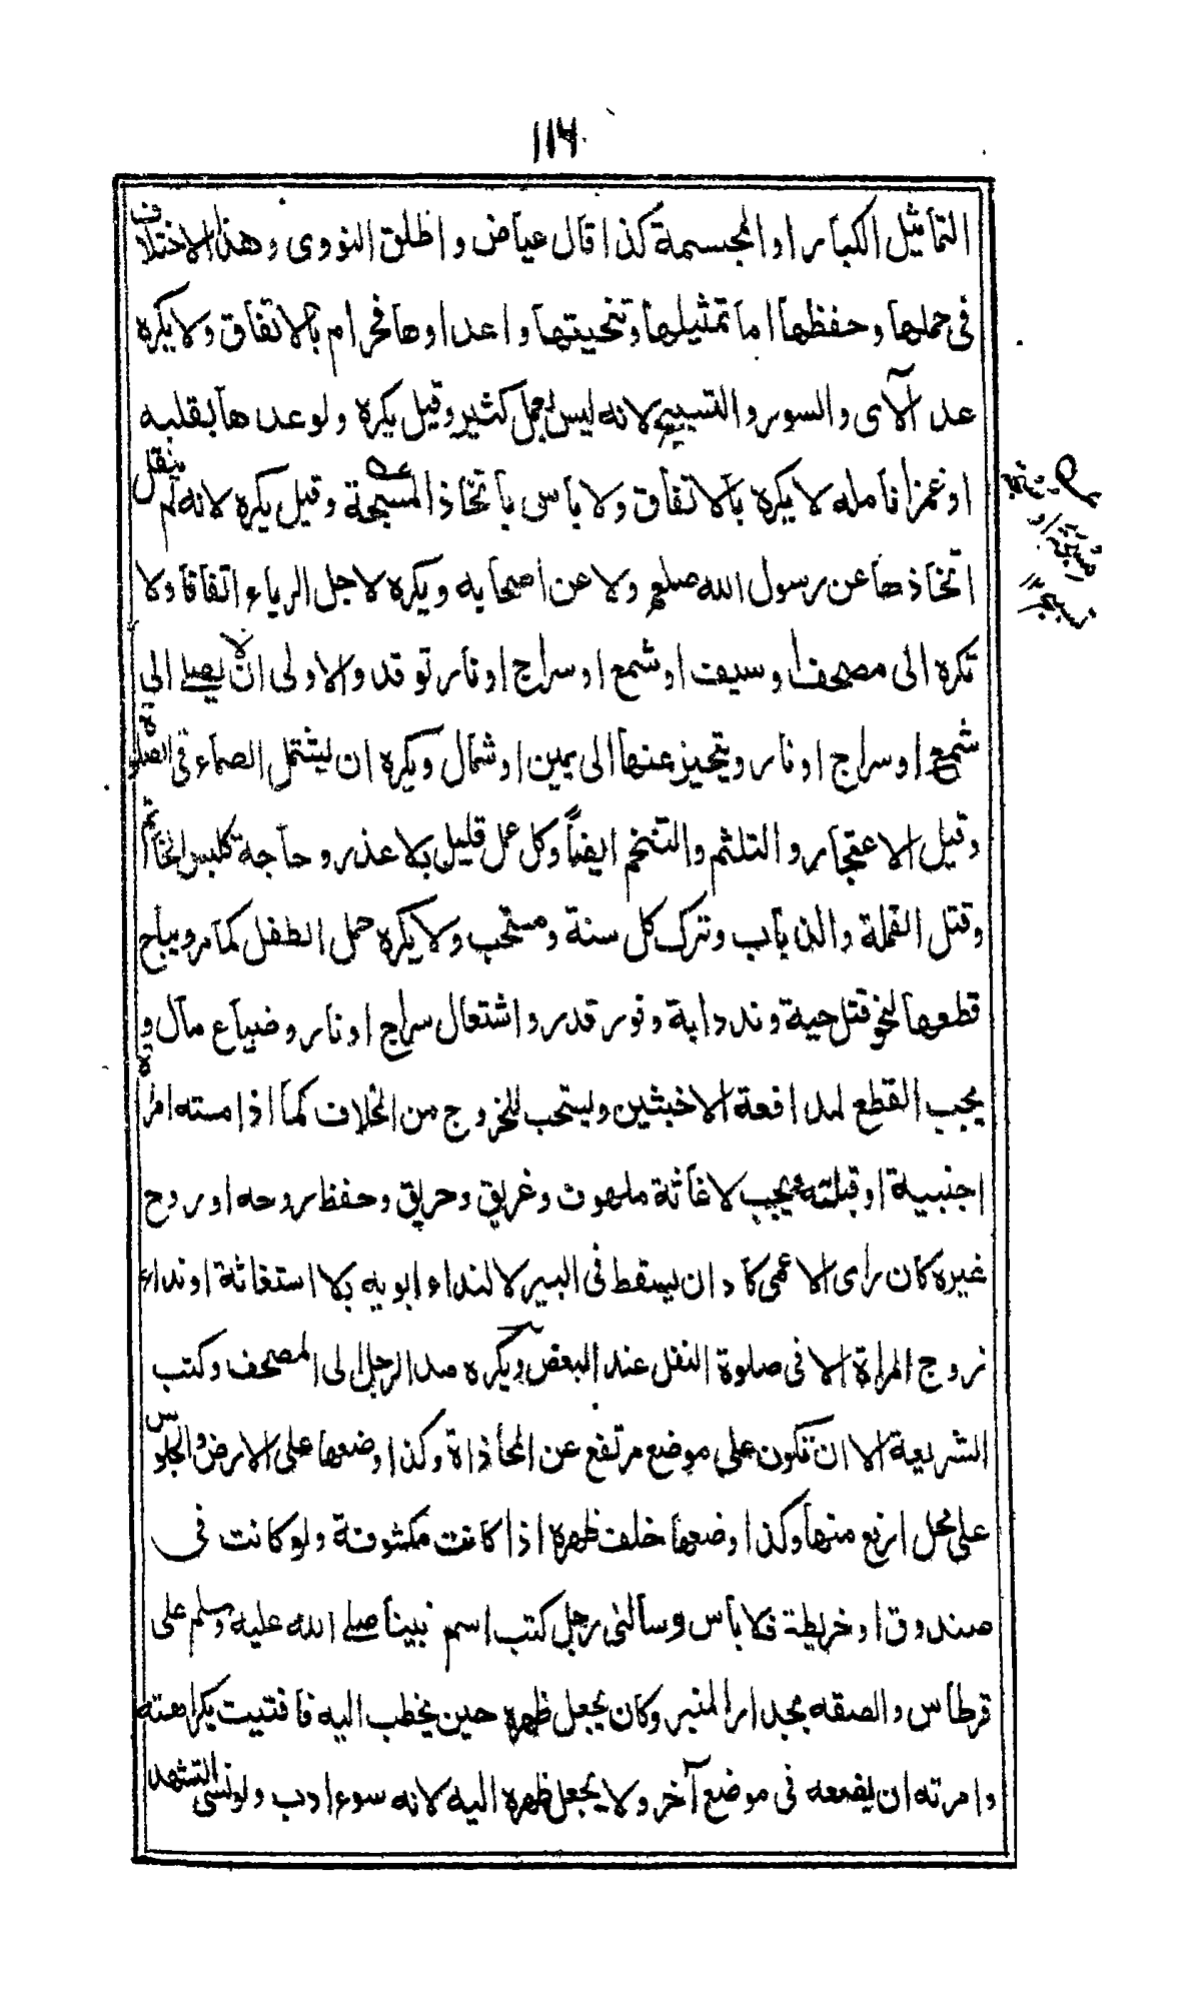 ١١٦
التماثيل الكبار او المجسمة كذا قال عياض و اطلق النووى وهذا الاختلاف
فى حملها وحفظها اما تمثيلها وتنحيتها واعداوها فحرام بالاتفاق ولا يكره
عد الآى والسور والتسبيح لانه ليس بعمل كثير وقيل يكره ولو عدها بقلبه
او غمز انامله لا يكره بالاتفاق ولا باس باتخاذ المسبحة وقيل يكره لانه لم ينقل
اتخاذها عن رسول الله صلعم ولا عن اصحابه ويكره لاجل الرياء اتفاقا ولا
تكره الى مصحف او سيف او شمع او سراج او نار توقد والاولى ان لا يصلے الى
شمع او سراج او نار ويتحيز عنها الى يمين او شمال ويكره ان يشتمل الصماء فى الصلوة
وقيل الاعتجار والتلثم والتنخم ايضاً وكل عمل قليل بلا عذر وحاجة كلبس الخاتم
وقتل القملة والذباب وترك كل سنة ومستحب ولا يكره حمل الطفل كما مر ويباح
قطعها لنحو قتل حية وند دابة وفور قدر واشتعال سراج او نار وضياع مال و
يجب القطع لمدافعة الاخبثين ويستحب للخروج من الخلاف كما اذا مسته امراة
اجنبية او قبلته ويجب لاغاثة ملهوف وغريق وحريق وحفظ روحه او روح
غيره كان راى الاعمى كاد ان يسقط فى البير لا لنداء ابويه بلا استغاثة او نداء
زوج المراة الا فى صلوة النفل عند البعض ويكره مد الرجل الى المصحف وكتب
الشريعة الا ان تكون على موضع مرتفع عن المحاذاة وكذا وضعها على الارض والجلوس
على محل ارفع منها وكذا وضعها خلف ظهره اذا كانت مكشوفة ولو كانت فى
صندوق او خريطة فلا باس وسالنى رجل كتب اسم نبينا صلے الله عليه وسلم على
قرطاس والصقه بجدار المنبر وكان يجعل ظهره حين يخطب اليه فافتيت بكراهته
وامرته ان يضعه فى موضع آخر ولا يجعل ظهره اليه لانه سوء ادب ولو نسى التشهد